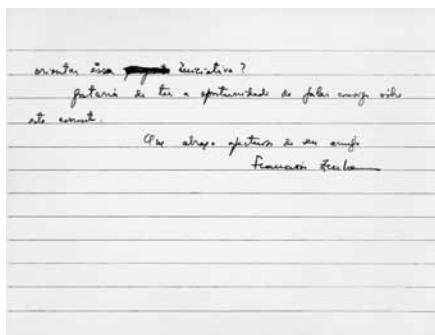 orientar essa iniciativa?
gostaria de ter a oportunidade de falar consigo sobre
este assunto.
Um abraço afectuoso do seu amigo
Francisco